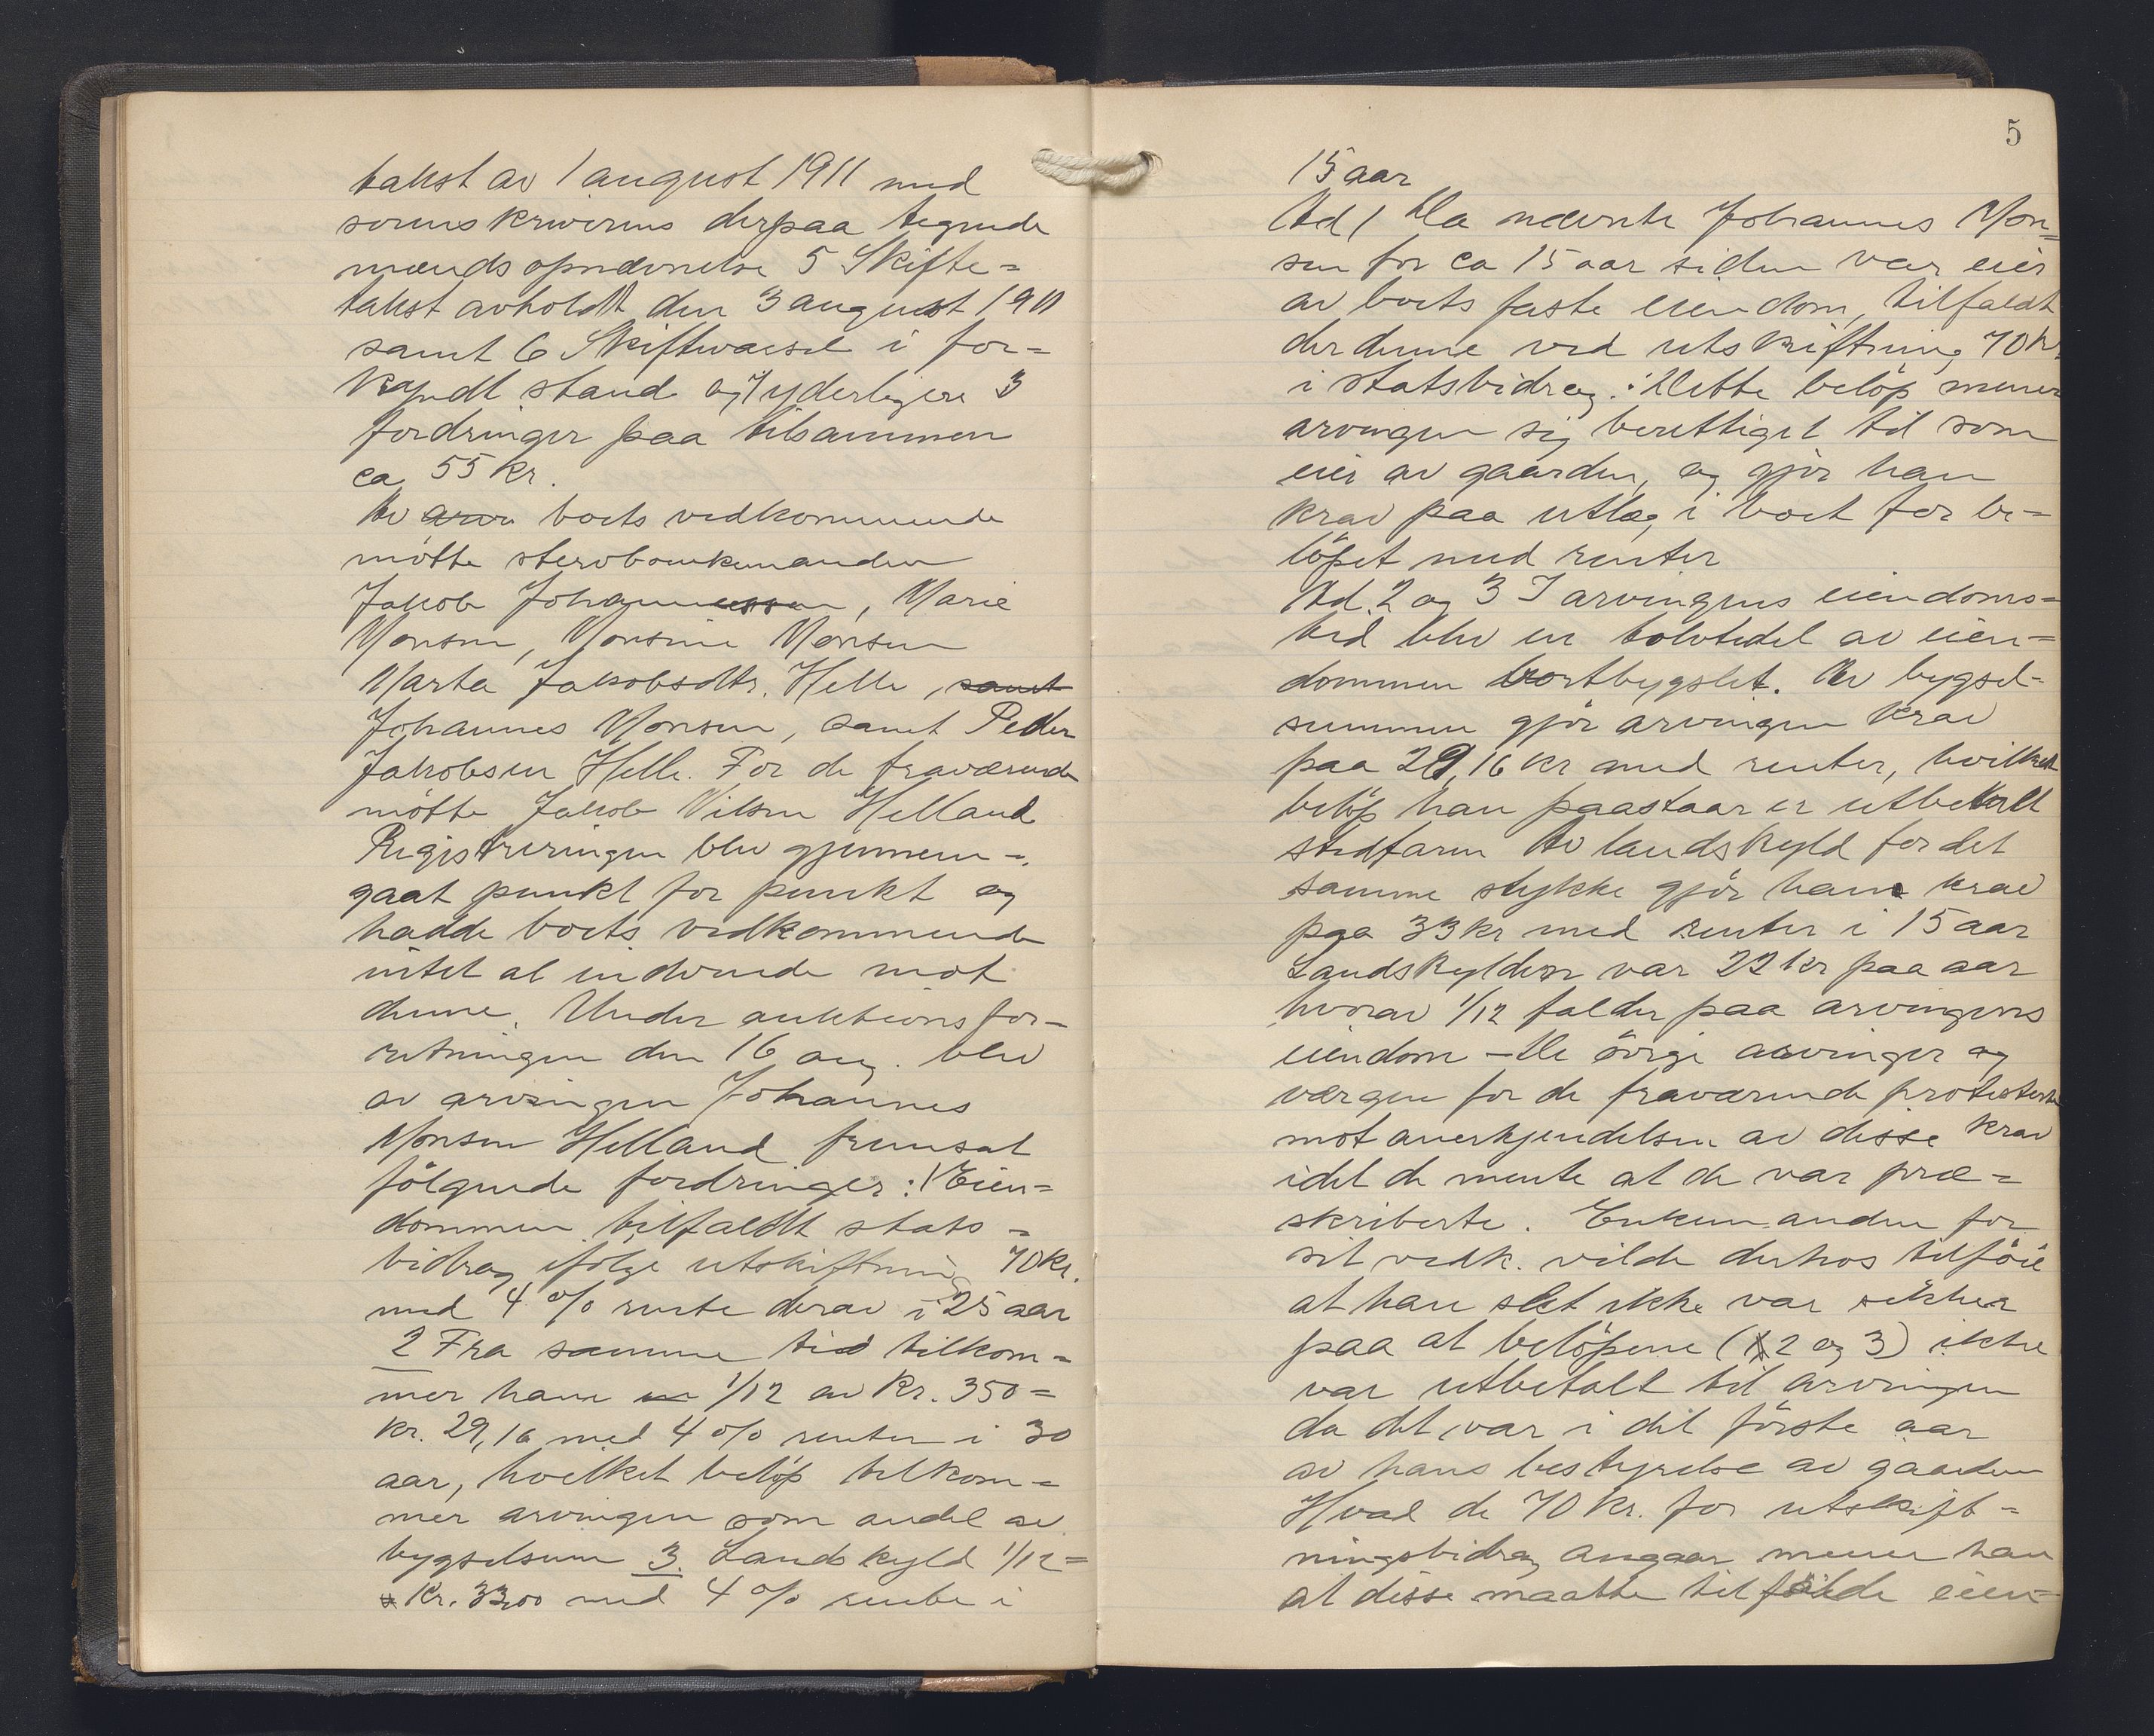 takst av 1 august 1911 med
sorenskriverens derpaa tegnede
mændsopnævnelse 5 Skifte=
takst avholdt den 3 august 1911
samt 6 Skiftevarsel i for=
kyndt stand og 7 yderligere 3
fordringer paa tilsammen
ca 55 kr.
Av arvi boets vedkommende
møtte stervboenkemanden
Jakob Johannessen, Marie
Monsen, Monsine Monsen
Marta Jakobsdtr. Helle, samt
Johannes Monsen, samt Peder
Jakobsen Helle. For de fraværende
møtte Jakob Nilsen Helland
Registreringen blev gjennem=
gaat punkt for punkt og
hadde boets vedkommende
intet at indvende mot
denne. Under auktionsfor=
retningen den 16 aug. blev
av arvingen Johannes
Monsen Helland fremsat
følgende fordringer: 1 Eien=
dommen tilfaldt stats=
bidrag ifølge utskiftning 70 kr.
med 4 % rente derav i 25 aar
2 Fra samme tid tilkom=
mer ham 1/12 av kr. 350=
kr. 29,16 med 4 % renter i 30
aar, hvilket beløp tilkom=
mer arvingen som andel av
bygselsum 3. Landskyld 1/12=
kr. 33,00 med 4 % rente i
5
15 aar
Ad 1 Da nævnte Johannes Mon=
sen for ca 15 aar siden var eier
av boets faste eiendom, tilfaldt
der denne ved utskiftning 70 kr.
i statsbidrag. Dette beløp mener
arvingen sig berettiget til som
eier av gaarden, og gjør han
krav paa utlæg i boet for be=
løpet med renter
Ad. 2 og 3 I arvingens eiendoms=
tid blev en tolvtedel av eien=
dommen bortbygslet. Av bygsel=
summen gjør arvingen krav
paa 29,16 kr med renter, hvilket
beløp han paastaar er utbetalt
stedfaren Av landskyld for det
samme stykke gjør han krav
paa 33 kr med renter i 15 aar
Landskylden var 22 kr paa aar
hvorav 1/12 falder paa arvingens
eiendom – De øvrige arvinger og
værgen for de fraværende protesterte
mot anerkjendelsen av disse krav
idet de mente at de var præ=
skriberte. Enkemanden for
sit vedk. vilde derhos tilføie
at han slet ikke var sikker
paa at beløpene (2 og 3) ikke
var utbetalt til arvingen
da det var i det første aar
av hans bestyrelse av gaarden
Hvad de 70 kr. for utskift=
ningsbidrag angaar mener han
at disse maatte tilfalde eien=